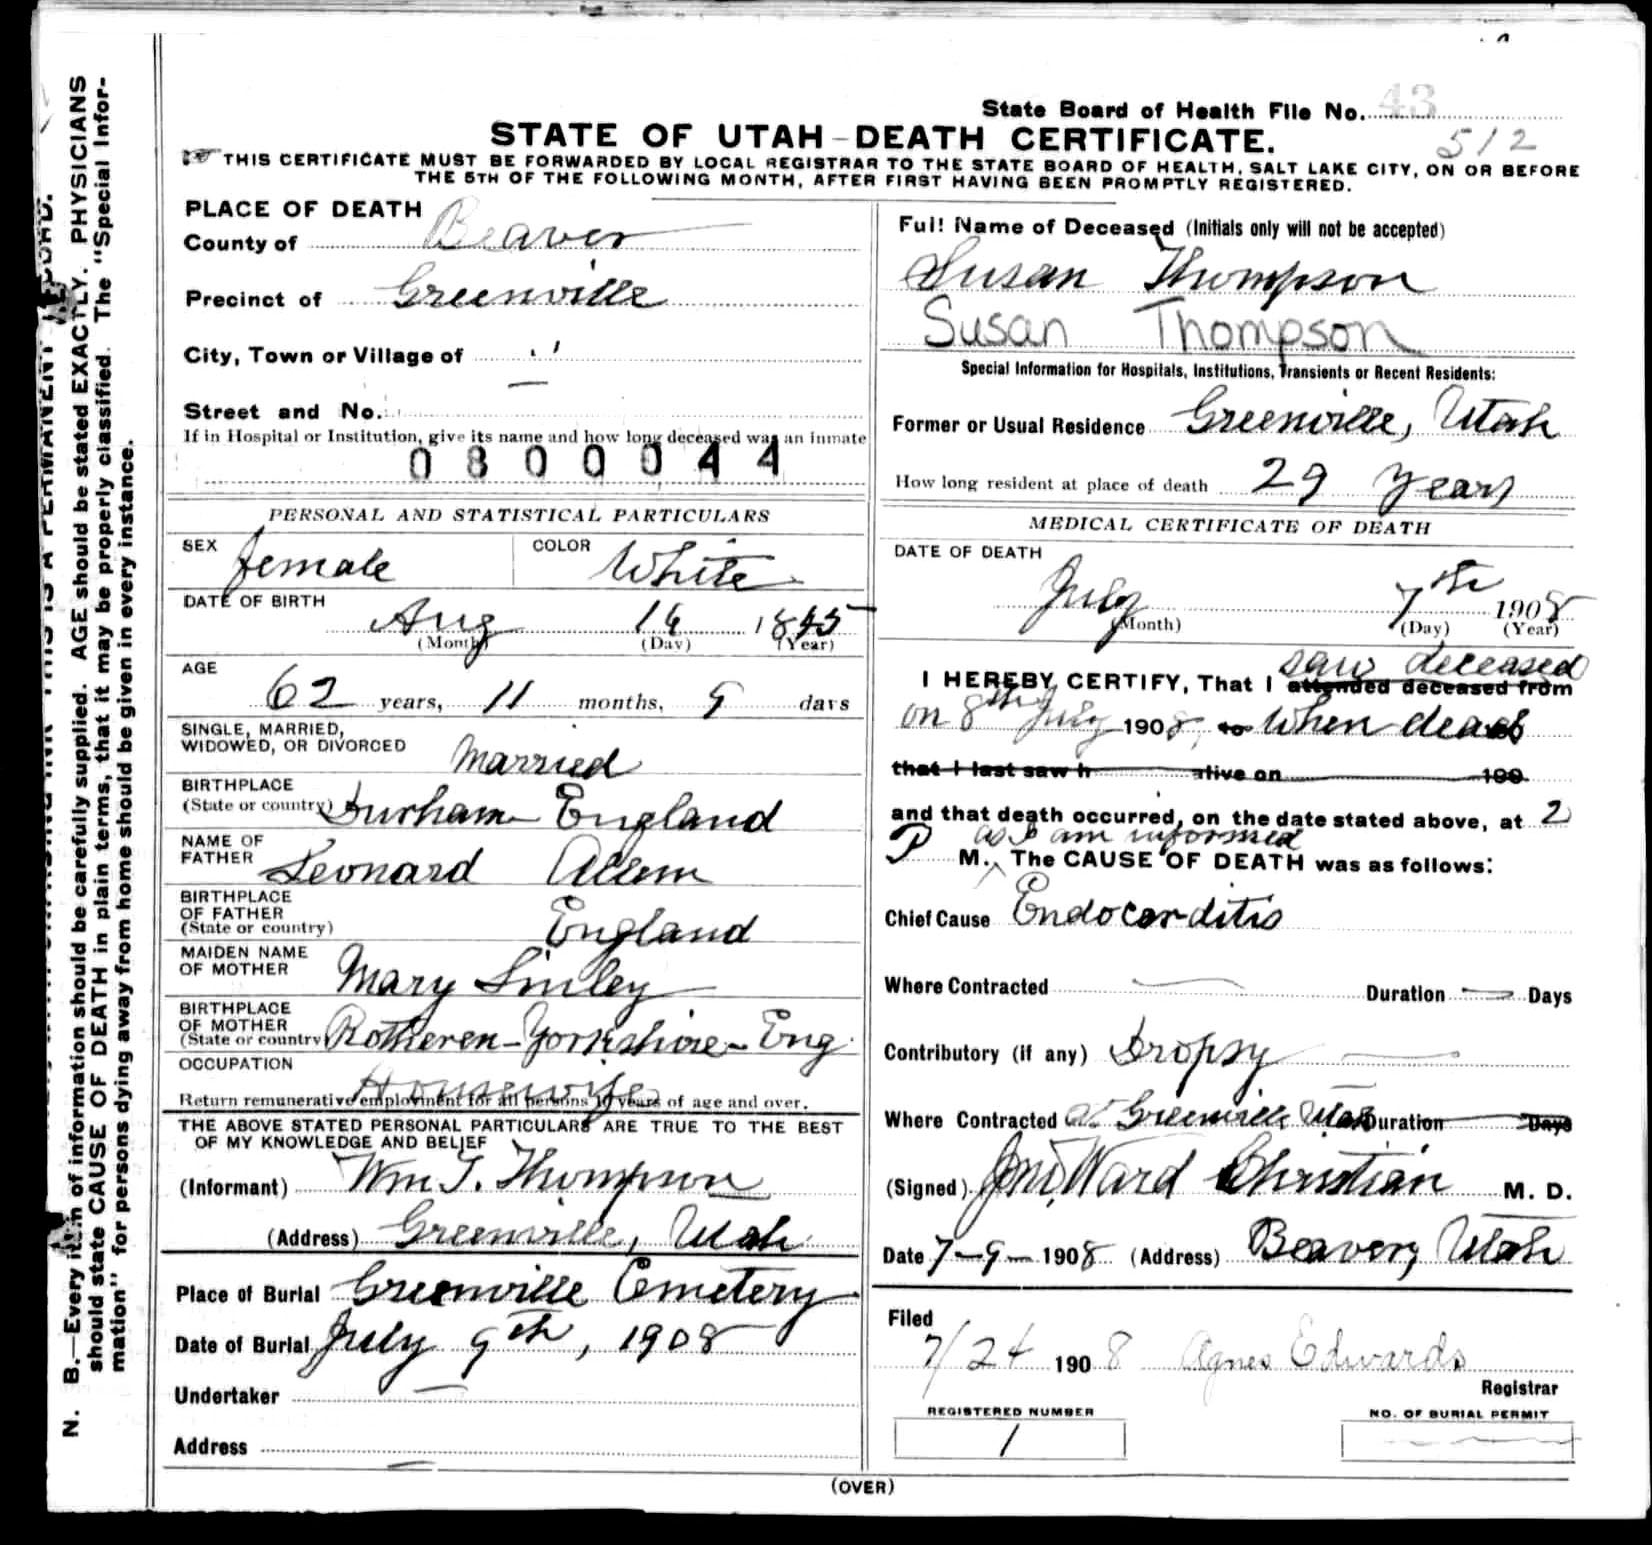 State Board of Health File No. 43
512
STATE OF UTAH - DEATH CERTIFICATE.
THIS CERTIFICATE MUST BE FORWARDED BY LOCAL REGISTRAR TO THE STATE BOARD OF HEALTH, SALT LAKE CITY, ON OR BEFORE
THE 5TH OF THE FOLLOWING MONTH, AFTER FIRST HAVING BEEN PROMPTLY REGISTERED.
PLACE OF DEATH
County of Beaver
Precinct of Greenville
City, Town or Village of "
Street and No. —
If in Hospital or Institution, give its name and how long deceased was an inmate
0800044
PERSONAL AND STATISTICAL PARTICULARS
SEX female COLOR White
DATE OF BIRTH Aug 16 1845
(Month) (Day) (Year)
AGE
62 years, 11 months, 9 days
SINGLE, MARRIED,
WIDOWED, OR DIVORCED Married
BIRTHPLACE
(State or country) Durham England
NAME OF
FATHER Leonard Allem
BIRTHPLACE
OF FATHER
(State or country) England
MAIDEN NAME
OF MOTHER Mary Linley
BIRTHPLACE
OF MOTHER
(State or country Rotheren - Yorkshire - Eng
OCCUPATION
Housewife
Return remunerative employment for all persons 10 years of age and over.
THE ABOVE STATED PERSONAL PARTICULARS ARE TRUE TO THE BEST
OF MY KNOWLEDGE AND BELIEF
(Informant) Wm T. Thompson
(Address) Greenville, Utah
Place of Burial Greenville Cemetery
Date of Burial July 9th, 1908
Undertaker —
Address —
Full Name of Deceased (Initials only will not be accepted)
Susan Thompson
Susan Thompson
Special Information for Hospitals, Institutions, Transients or Recent Residents:
Former or Usual Residence Greenville, Utah
How long resident at place of death 29 years
MEDICAL CERTIFICATE OF DEATH
DATE OF DEATH
July 7th 1908
(Month) (Day) (Year)
saw deceased
I HEREBY CERTIFY, That I attended deceased from
on 8th July 1908, to When dead
that I last saw h alive on 190
and that death occurred, on the date stated above, at 2
as I am informed
P M. The CAUSE OF DEATH was as follows:
Chief Cause Endocarditis
Where Contracted — Duration — Days
Contributory (if any) Dropsy —
Where Contracted at Greenville Utah Duration Days
(Signed) Ward Christian M. D.
Date 7-9-1908 (Address) Beaver, Utah
Filed
7/24 1908 Agnes Edwards
Registrar
REGISTERED NUMBER
1
NO. OF BURIAL PERMIT
—
(OVER)
N. B.—Every item of information should be carefully supplied. AGE should be stated EXACTLY. PHYSICIANS
should state CAUSE OF DEATH in plain terms, that it may be properly classified. The "Special Infor-
mation" for persons dying away from home should be given in every instance.